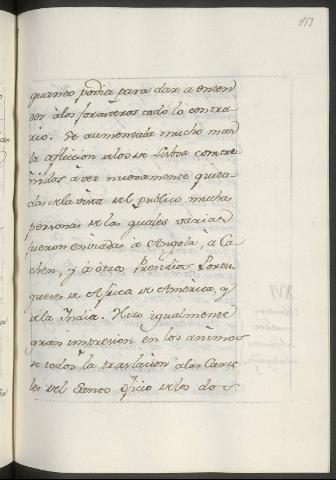 153
quanto podia para dar a enten
der à los forasteros todo lo contra
rio. Se aumentaba mucho mas
la afliccion de los de Lisboa
à ver nuevamente quita
das de la vista del publico muchas
personas de las quales varias
fueron enviadas à Angola, à Ca
chen, y à otros Presidios Portu
gueses de Africa de America, y
de la India. Hizo igualmente
gran impresion en los animos
de todos la traslacion a las Carce
les del Santo Oficio de los do s